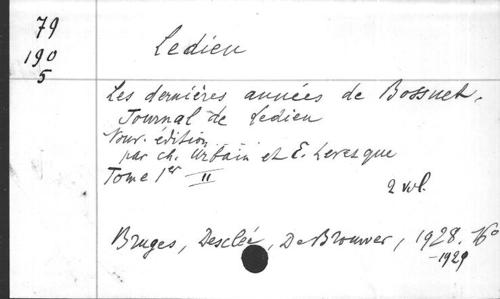 79
190
5
Ledieu
Les dernières années de Bossuet.
Journal de Ledieu
Nouv. édition
par Ch. Urbain et E. Levesque
Tome 1er II
2 vol.
Bruges, Desclée, De Brouwer, 1928. 16°
-1929